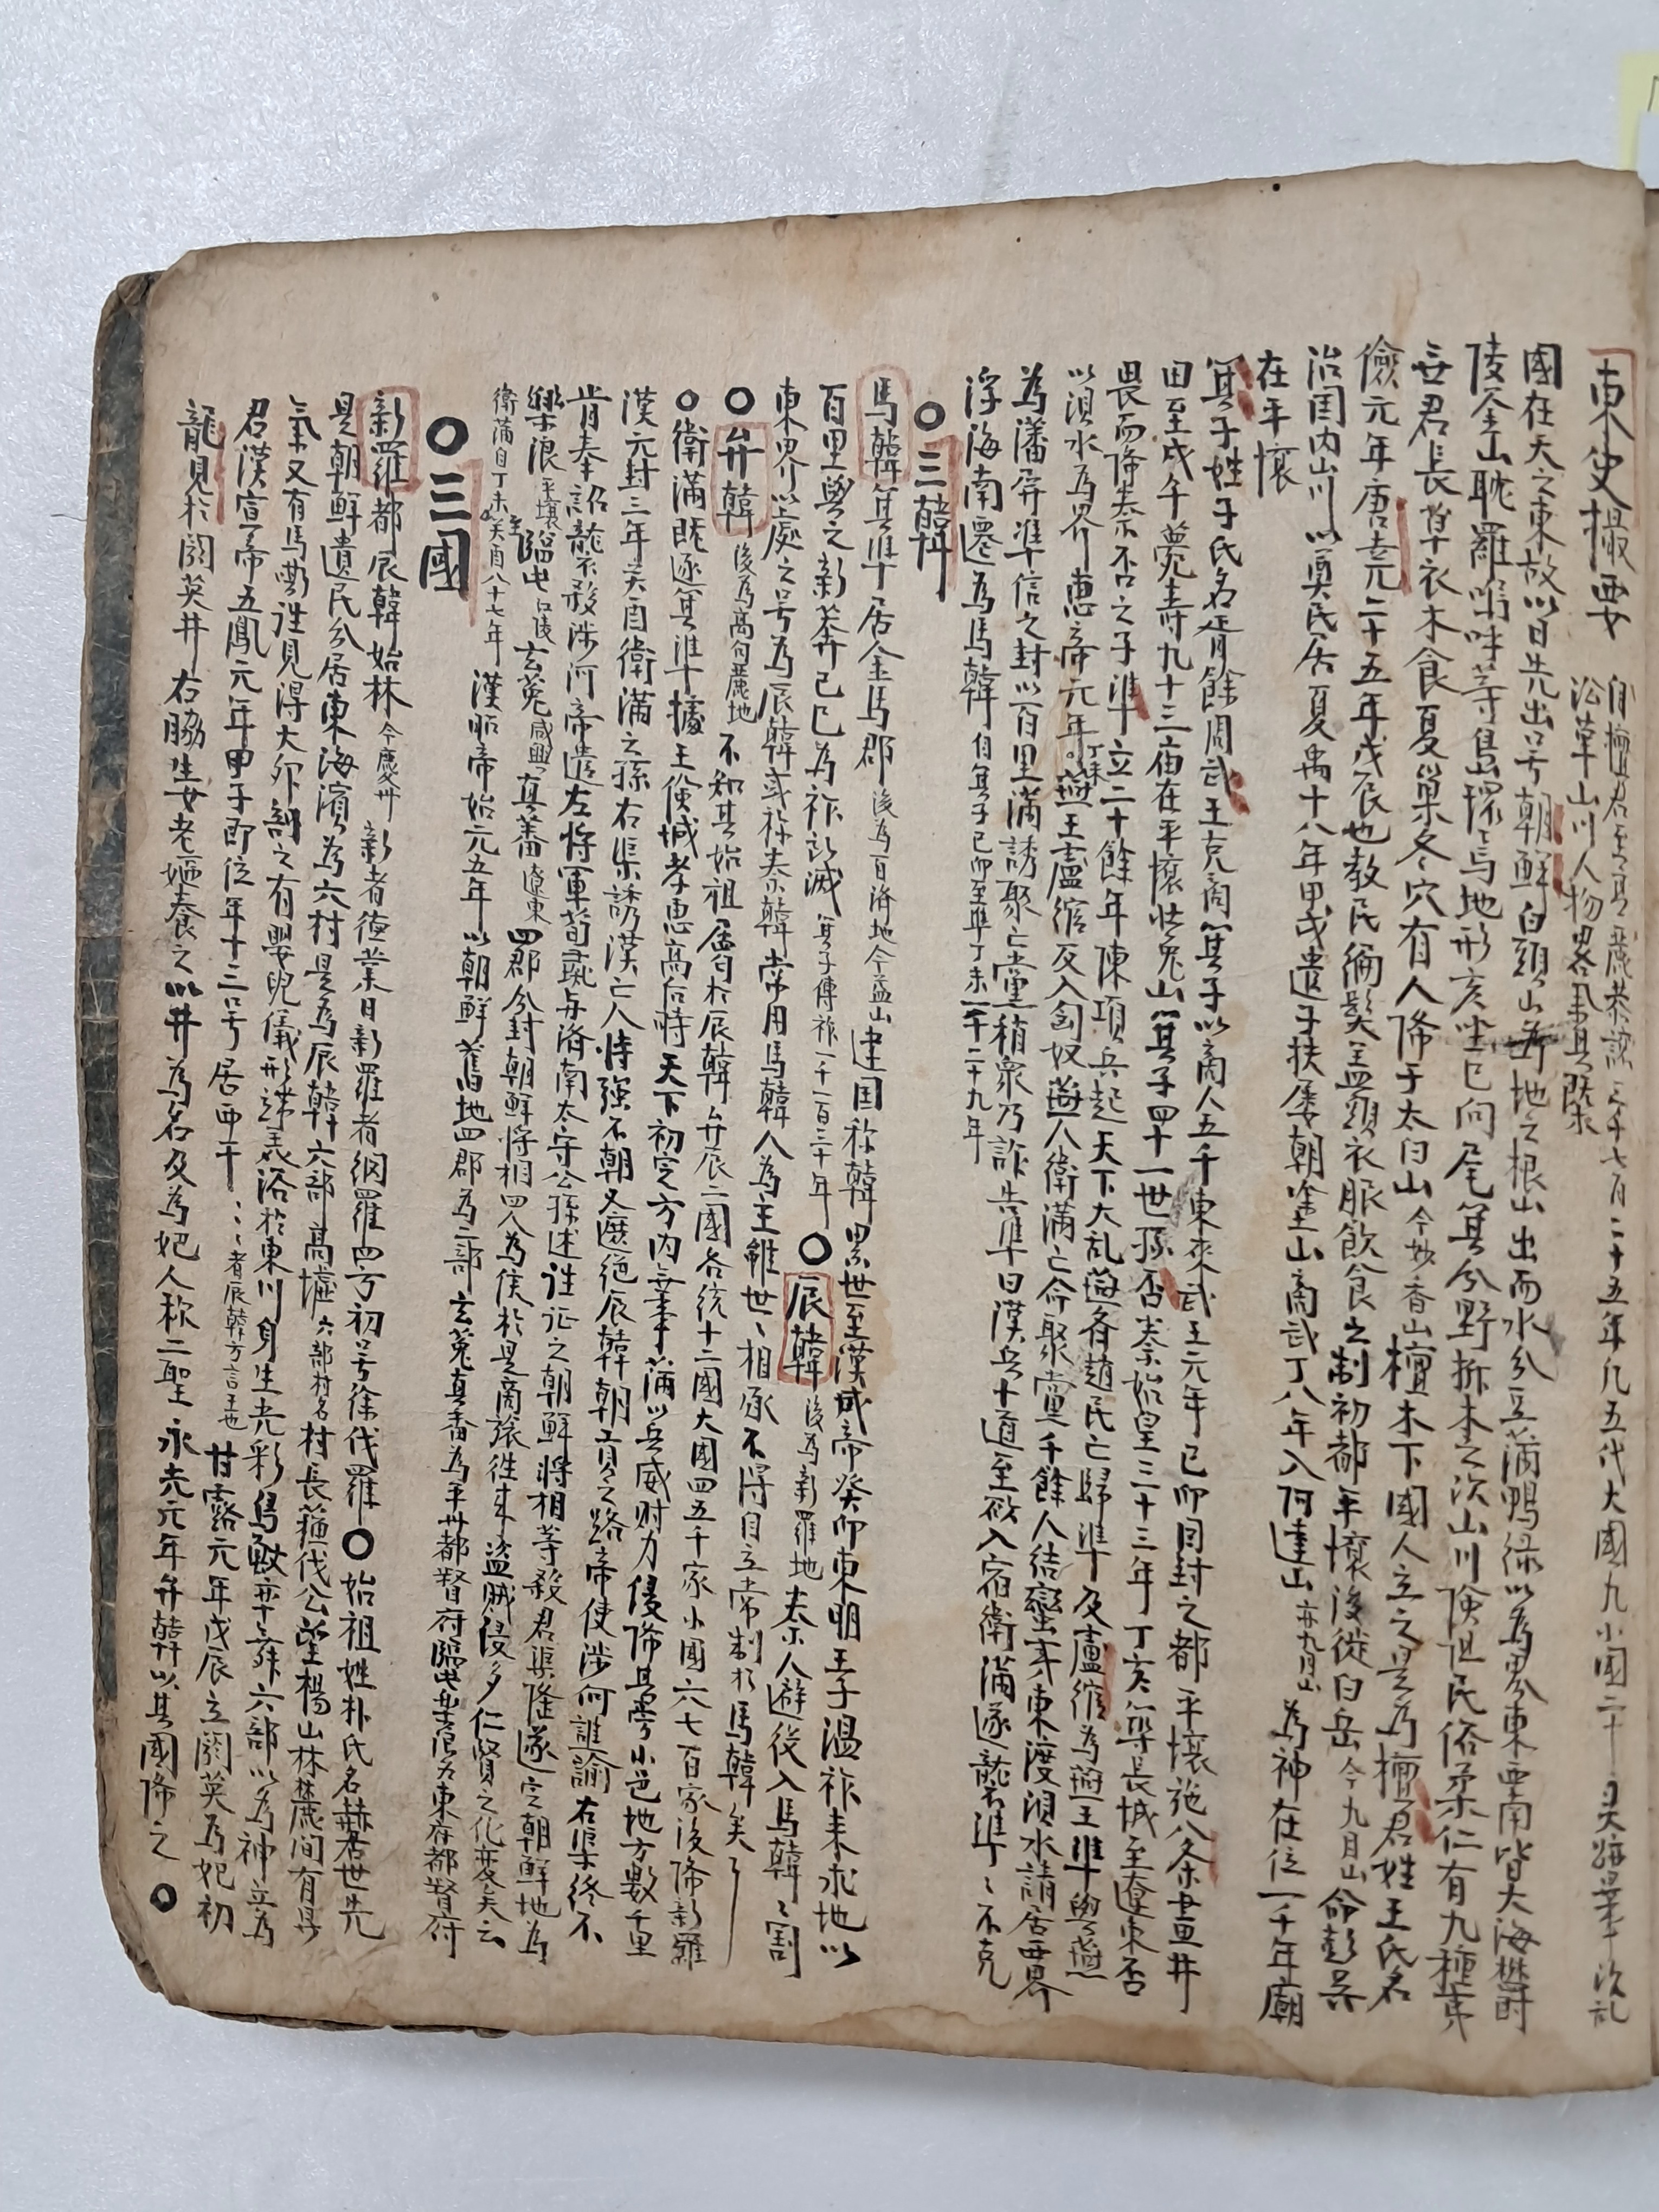 東史撮要 自檀君至高麗恭讓三千七百二十五年凡五代大國九小國二十
沿革山川人物畧具其槩
國在天之東故以日先出号朝鮮白頭山 地之根山出而水分豆滿鴨綠以為界東西南皆大海欝
陵釜山耽羅 等島環焉地形亥坐巳向尾箕分野析木之次山川險阻民俗柔仁有九種夷
無君長草衣木食夏巢冬穴有人降于太白山今妙香山檀木下國人立之是為檀君姓王氏名
儉元年唐堯二十五年戊辰也教民編髮盖頭衣服飲食之制初都平壤後徙白岳今九月山命彭吳
治国内山川以奠民居夏禹十八年甲戌遣子扶婁朝塗山商武丁八年入阿達山亦九月山為神在位一千年廟
在平壤
箕子姓子氏名胥餘周武王克商箕子以商人五千東來武王元年己卯因封之都平壤施八条畫井
田至戊午薨壽九十三庙在平壤牡兎山箕子四十一世孫否秦始皇三十三年丁亥築長城至遼東否
畏而降秦否之子準立二十餘年陳項兵起天下大乱燕齊趙民亡歸準及盧綰為燕王準與燕
以浿水為界惠帝元年丁未燕王盧綰反入匈奴燕人衛滿亡命聚黨千餘人結蠻夷東渡浿水請居西界
為藩屏準信之封以百里滿誘聚亡黨稍衆乃詐告準曰漢兵十道至欲入宿衛滿遂襲準〻不克
浮海南遷為馬韓自箕子己卯至準丁未一千二十九年
○三韓
馬韓箕準居金馬郡後為百済地今益山建国称韓累世至漢成帝癸卯東明王子温祚来求地以
百里與之新莽己巳為祚所滅箕子傳祚一千一百三十年○辰韓後為新羅地秦人避役入馬韓〻割
東界以處之号為辰韓或称秦韓常用馬韓人為主雖世〻相承不得自立常制於馬韓矣
○弁韓後為高句麗地不知其始祖屬於辰韓弁辰二國各統十二國大國四五千家小國六七百家後降新羅
○衛滿既逐箕準據王儉城孝惠高后時天下初定方内無事滿以兵威財力侵降其旁小邑地方數千里
漢元封三年癸酉衛滿之孫右渠誘漢亡人恃強不朝又遮絶辰韓朝貢之路帝使涉何誰諭右渠終不
肯奉詔 殺涉河帝遣左將軍荀彘与済南太守公孫述往征之朝鮮將相等殺君渠降遂定朝鮮地為
樂浪平壤臨屯江陵玄菟咸興真蕃遼東四郡分封朝鮮將相四人為侯於是商旅往来盗賊侵多仁賢之化変矣云
衛滿自丁未至癸酉八十七年漢昭帝始元五年以朝鮮舊地四郡為二部玄菟真番為平州都督府臨屯楽浪為東府都督府
○三國
新羅都辰韓始林今慶州新者德業日新羅者網羅四方初号徐伐羅○始祖姓朴氏名赫居世先
是朝鮮遺民分居東海濱為六村是為辰韓六部高墟六部村名村長蘓伐公望楊山林麓間有異
氣又有馬嘶往見得大卵剖之有嬰兒儀形端美浴於東川身生光彩鳥獸率舞六部以為神立為
君漢宣帝五鳳元年甲子即位年十三号居西干〻〻者辰韓方言王也甘露元年戊辰立閼英為妃初
龍見於閼英井右脇生女老嫗養之以井為名及為妃人称二聖永光元年弁韓以其國降之○